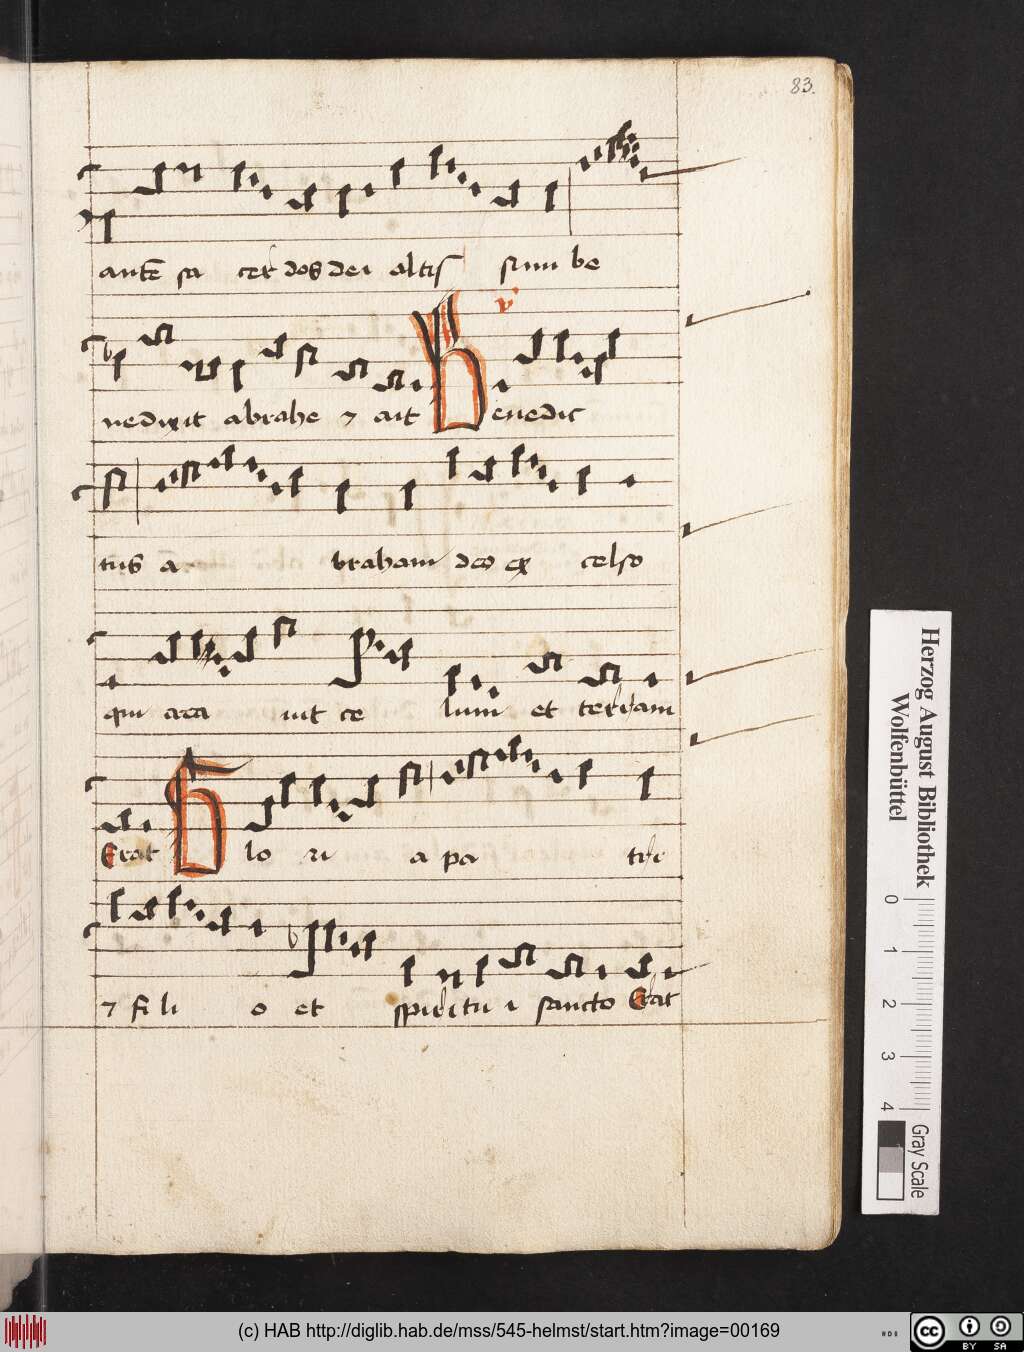 83.
autē sa cer dos dei altis simi be
v̓
nedixit abrahe ⁊ ait Benedic
tus a braham deo ex celso
qui crea uit ce lum et terram
Erat Glo ri a pa tri
⁊ fi li o et spiritu i sancto Erat
Herzog August Bibliothek
Wolfenbüttel
0 1 2 3 4
Gray Scale
(c) HAB http://diglib.hab.de/mss/545-helmst/start.htm?image=00169
cc BY SA